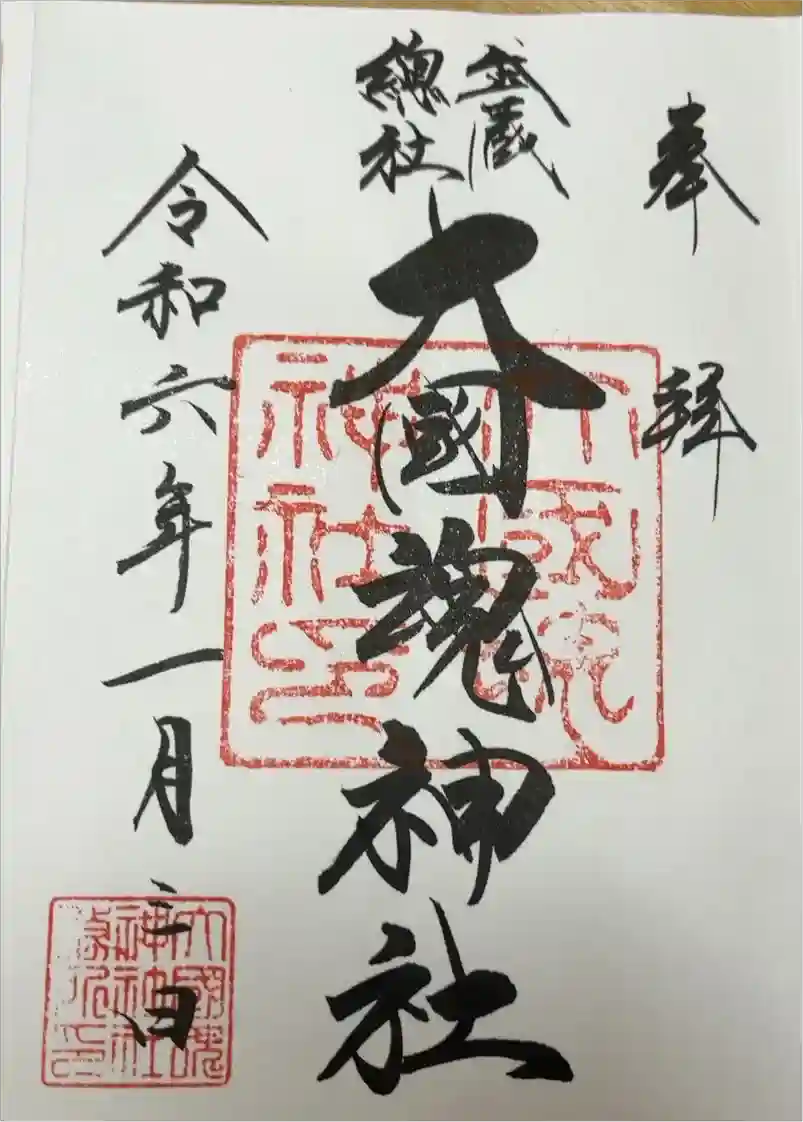 奉拝
武蔵
總社
大國魂神社
令和六年一月三日
大國魂
神社印
大國魂
神社